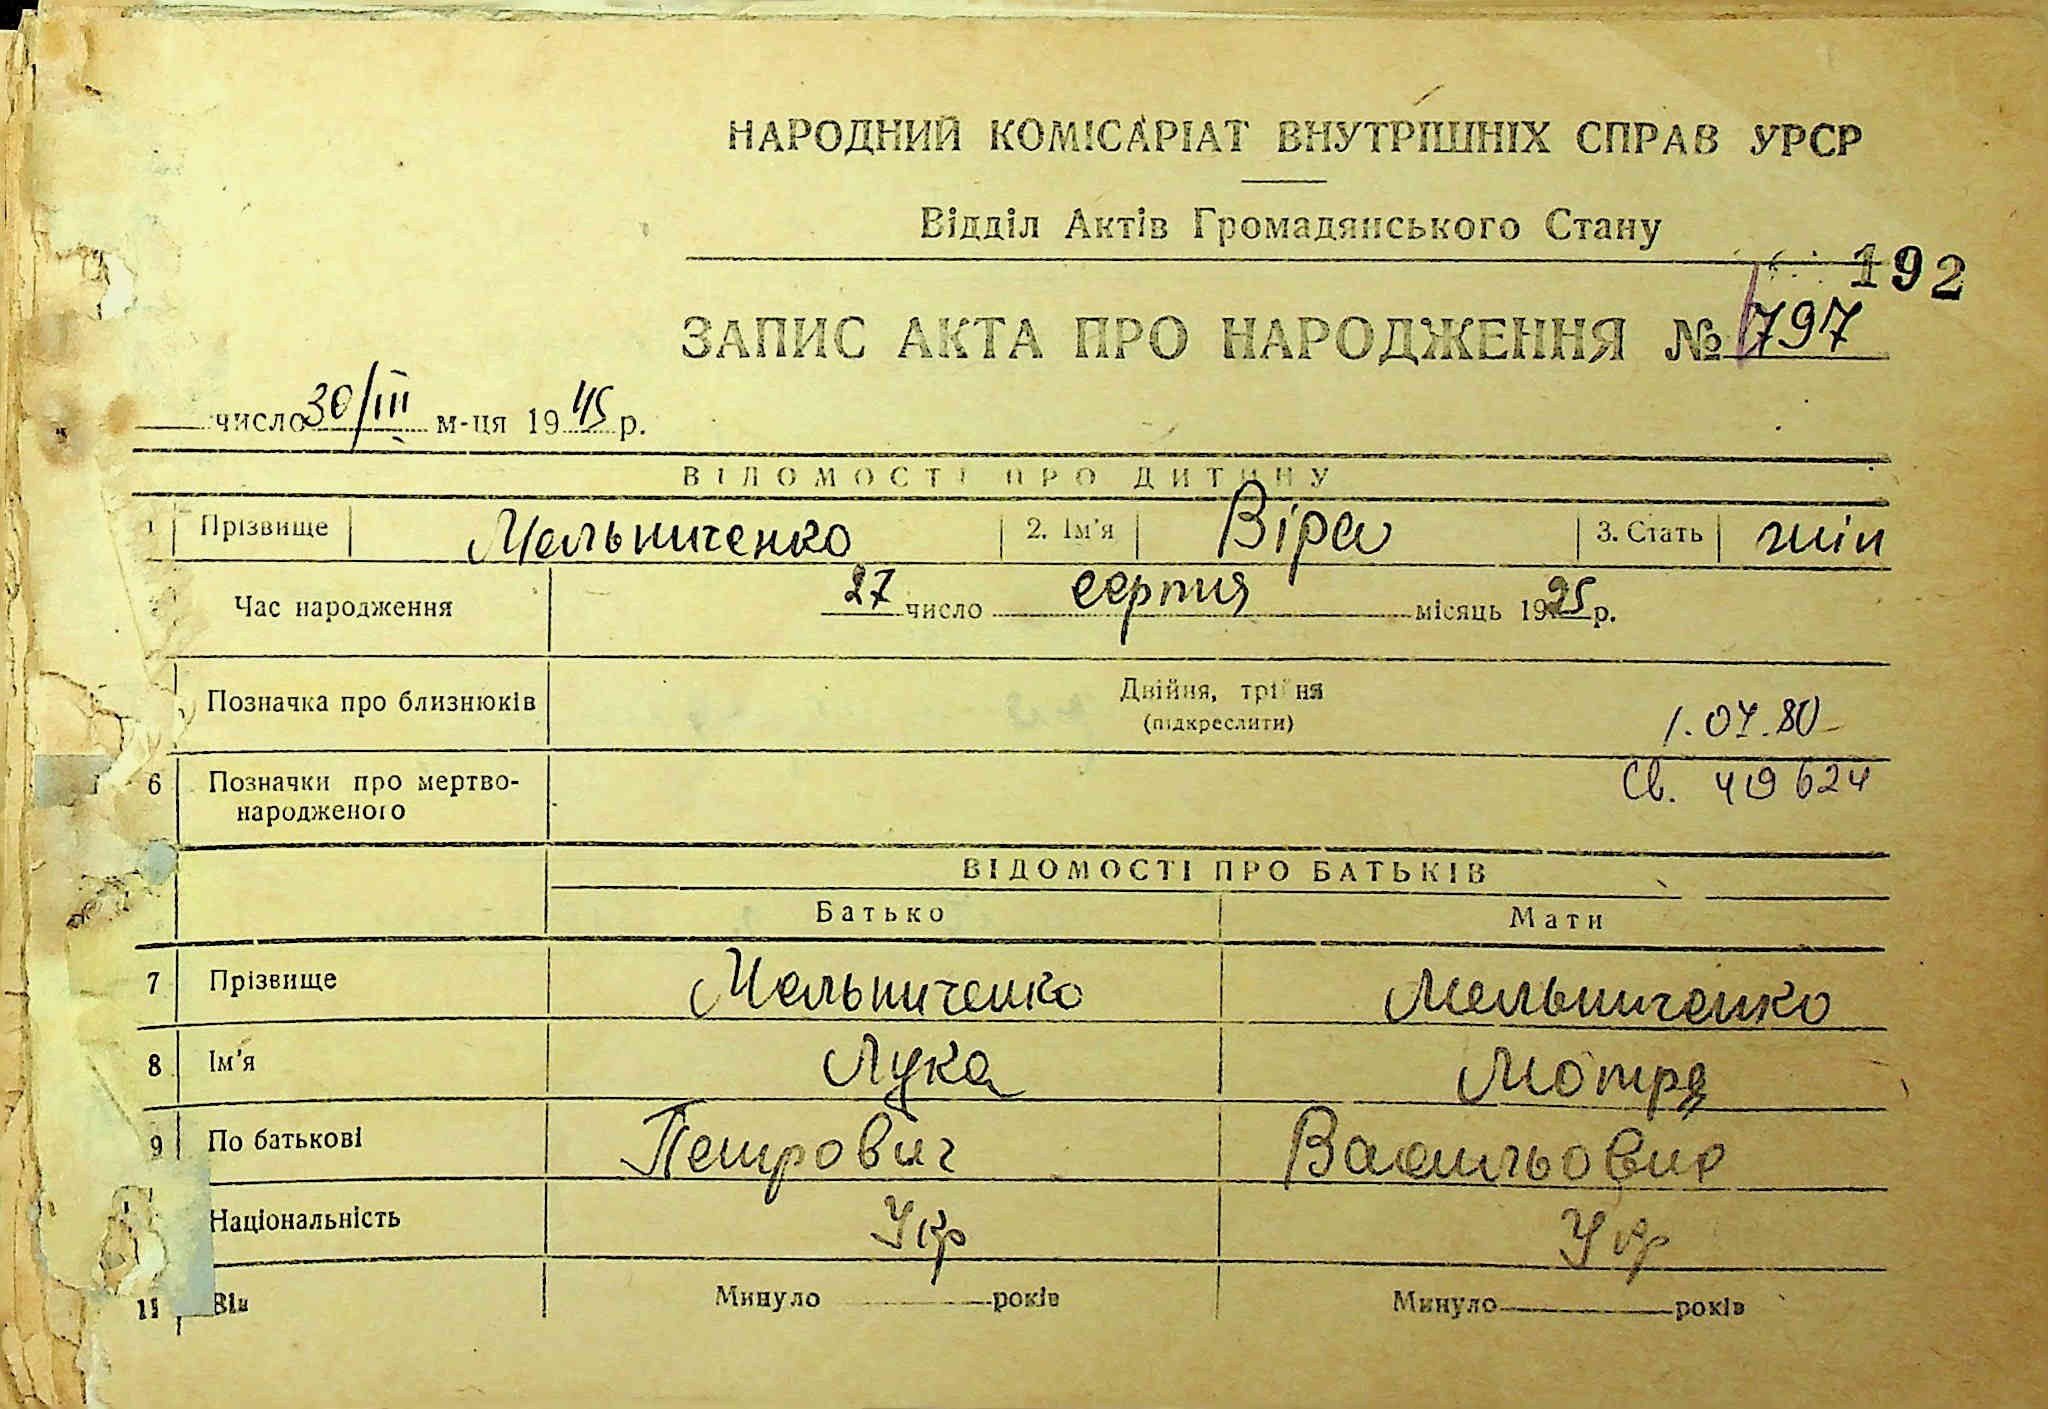 НАРОДНИЙ КОМІСАРІАТ ВНУТРІШНІХ СПРАВ УРСР
Відділ Актів Громадянського Стану
192
ЗАПИС АКТА ПРО НАРОДЖЕННЯ № 797
число 30/III м-ця 1945 р.
ВІДОМОСТІ ПРО ДИТИНУ
1 Прізвище Мельниченко 2. Ім'я Віра 3. Стать жін
Час народження 27 число серпня місяць 1925 р.
Позначка про близнюків Двійня, трійня
(підкреслити)
1.07.80
6 Позначки про мертво-
народженого
Св. 419624
ВІДОМОСТІ ПРО БАТЬКІВ
Батько Мати
7 Прізвище Мельниченко Мельниченко
8 Ім'я Лука Мотря
9 По батькові Петрович Васильовна
Національність Укр Укр
11 Вік Минуло років Минуло років